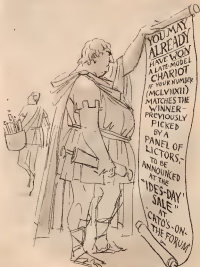 YOU MAY
ALREADY
HAVE WON
A LATE-MODEL
CHARIOT
IF YOUR NUMBER
(MCLVIIXII)
MATCHES THE
WINNER
PREVIOUSLY
PICKED
BY A
PANEL OF
LICTORS,
TO BE
ANNOUNCED
AT THE
"IDES-DAY
SALE"
AT
CATO'S-ON-
THE FORUM